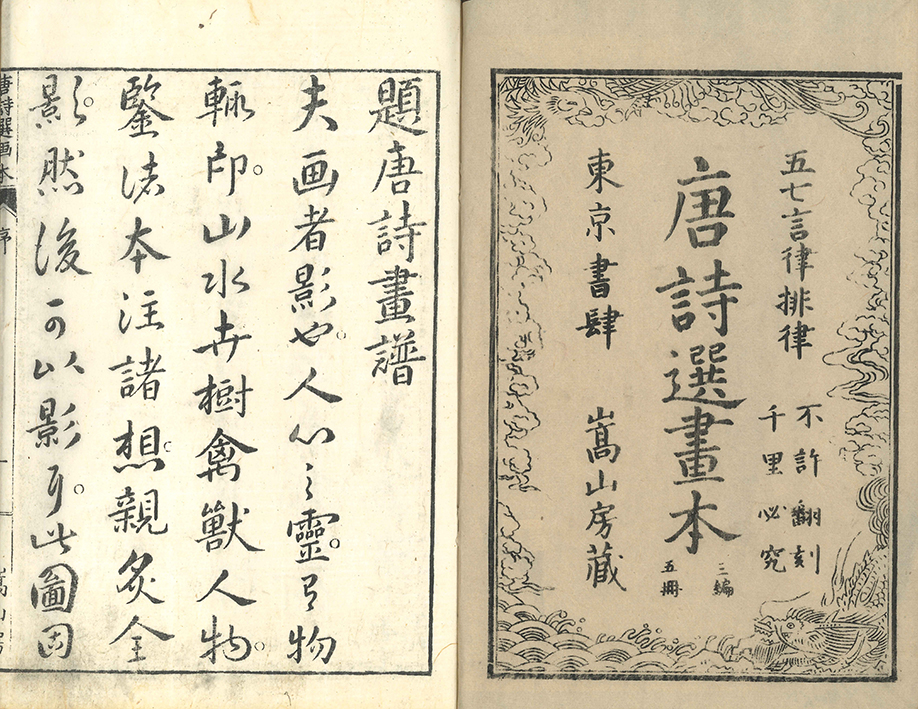 五七言律排律
不許翻刻
千里必究
唐詩選畫本
三編
五冊
東京書肆 嵩山房藏
題唐詩畫譜
夫画者影也。人心之靈。物
輙印。山水卉樹禽獸人物。
鑒諸本注諸想。親炙全
影。然後可以影。此圖固
唐詩選画本 序 一 嵩山房